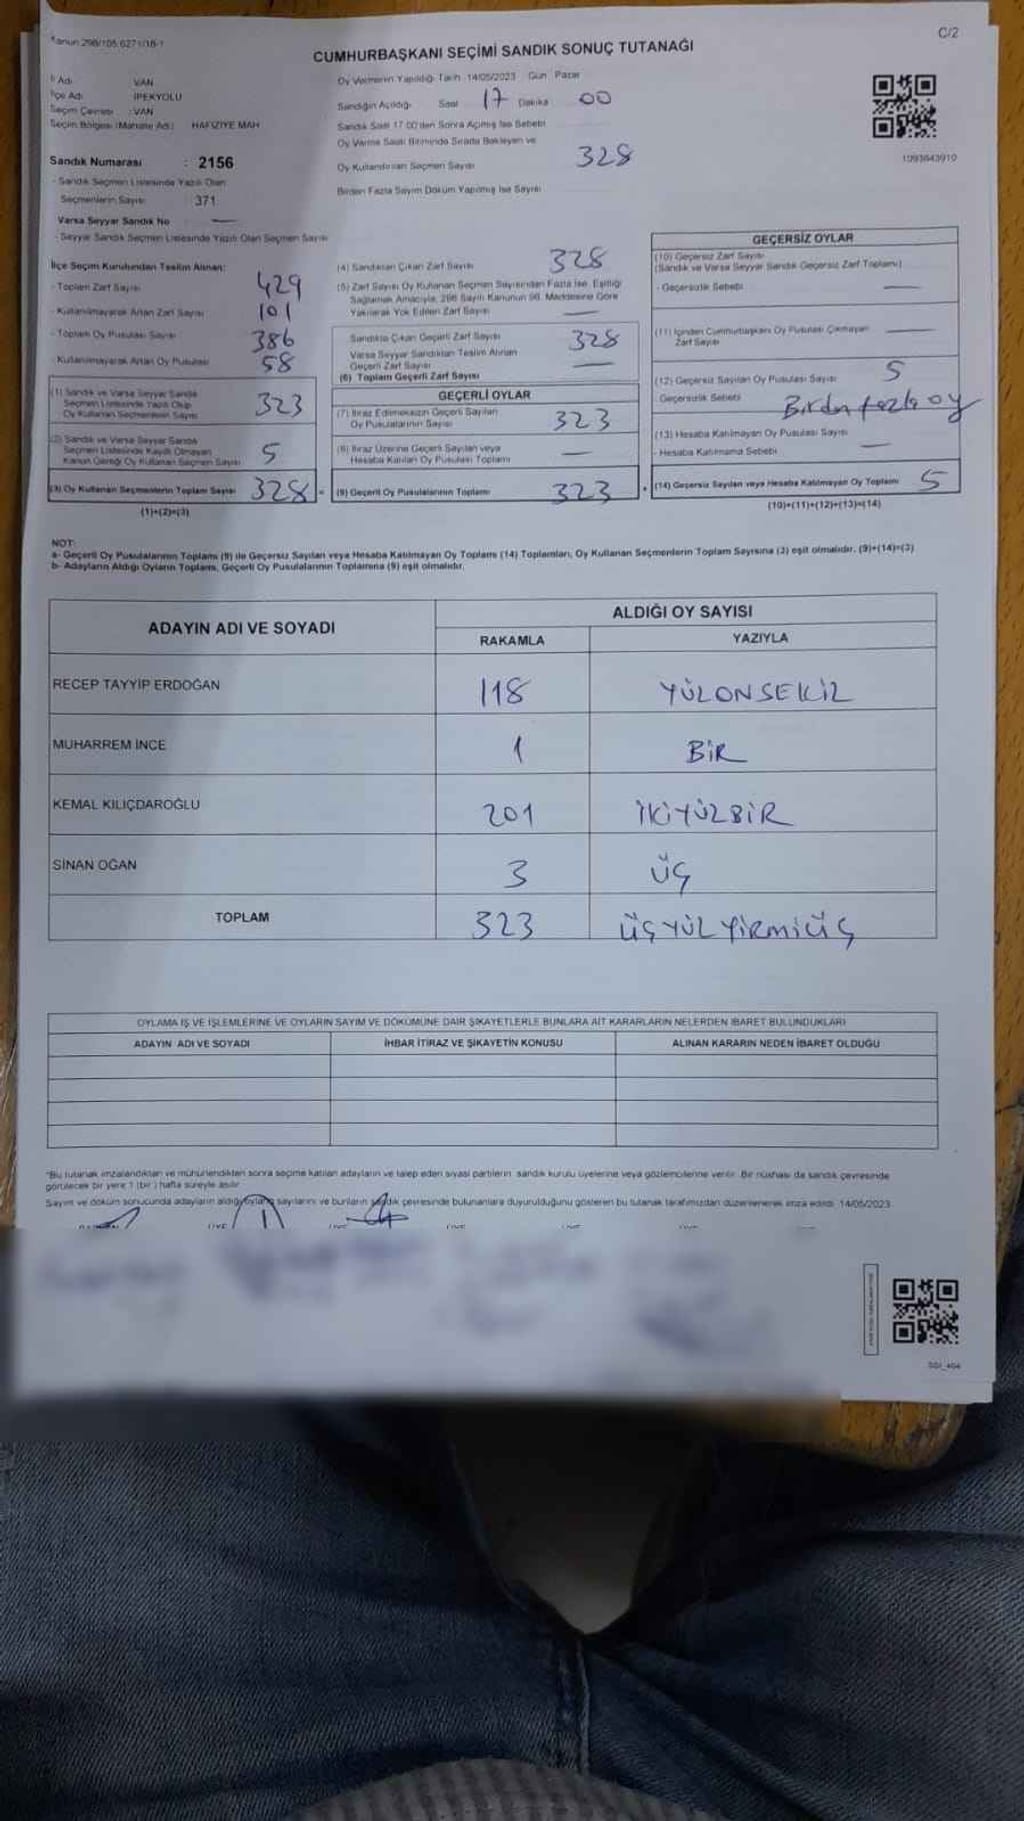 Kanun 298/105,6271/18-1
C/2
CUMHURBAŞKANI SEÇİMİ SANDIK SONUÇ TUTANAĞI
İl Adı : VAN
İlçe Adı : İPEKYOLU
Seçim Çevresi : VAN
Seçim Bölgesi (Mahalle Adı) : HAFIZİYE MAH
Sandık Numarası : 2156
- Sandık Seçmen Listesinde Yazılı Olan
Seçmenlerin Sayısı : 371
Varsa Seyyar Sandık No —
- Seyyar Sandık Seçmen Listesinde Yazılı Olan Seçmen Sayısı
Oy Vermenin Yapıldığı Tarih : 14/05/2023 Gün : Pazar
Sandığın Açıldığı Saat 17 Dakika 00
Sandık Saat 17.00'den Sonra Açılmış İse Sebebi
Oy Verme Saati Bitiminde Sırada Bekleyen ve
Oy Kullandırılan Seçmen Sayısı 328
Birden Fazla Sayım Döküm Yapılmış İse Sayısı
1093643910
İlçe Seçim Kurulundan Teslim Alınan:
- Toplam Zarf Sayısı 429
- Kullanılmayarak Artan Zarf Sayısı 101
- Toplam Oy Pusulası Sayısı 386
- Kullanılmayarak Artan Oy Pusulası 58
(1) Sandık ve Varsa Seyyar Sandık
Seçmen Listesinde Yazılı Olup
Oy Kullanan Seçmenlerin Sayısı 323
(2) Sandık ve Varsa Seyyar Sandık
Seçmen Listesinde Kayıtlı Olmayan
Kanun Gereği Oy Kullanan Seçmen Sayısı 5
(3) Oy Kullanan Seçmenlerin Toplam Sayısı 328 =
(1)+(2)=(3)
(4) Sandıktan Çıkan Zarf Sayısı 328
(5) Zarf Sayısı Oy Kullanan Seçmen Sayısından Fazla İse, Eşitliği
Sağlamak Amacıyla, 298 Sayılı Kanunun 98. Maddesine Göre
Yakılarak Yok Edilen Zarf Sayısı —
Sandıkta Çıkan Geçerli Zarf Sayısı 328
Varsa Seyyar Sandıktan Teslim Alınan
Geçerli Zarf Sayısı —
(6) Toplam Geçerli Zarf Sayısı
GEÇERLİ OYLAR
(7) İtiraz Edilmeksizin Geçerli Sayılan
Oy Pusulalarının Sayısı 323
(8) İtiraz Üzerine Geçerli Sayılan veya
Hesaba Katılan Oy Pusulası Toplamı —
(9) Geçerli Oy Pusulalarının Toplamı 323 +
GEÇERSİZ OYLAR
(10) Geçersiz Zarf Sayısı
(Sandık ve Varsa Seyyar Sandık Geçersiz Zarf Toplamı)
- Geçersizlik Sebebi —
(11) İçinden Cumhurbaşkanı Oy Pusulası Çıkmayan
Zarf Sayısı —
(12) Geçersiz Sayılan Oy Pusulası Sayısı 5
Geçersizlik Sebebi Birden fazla oy
(13) Hesaba Katılmayan Oy Pusulası Sayısı
- Hesaba Katılmama Sebebi —
(14) Geçersiz Sayılan veya Hesaba Katılmayan Oy Toplamı 5
(10)+(11)+(12)+(13)=(14)
NOT:
a- Geçerli Oy Pusulalarının Toplamı (9) ile Geçersiz Sayılan veya Hesaba Katılmayan Oy Toplamı (14) Toplamları, Oy Kullanan Seçmenlerin Toplam Sayısına (3) eşit olmalıdır. (9)+(14)=(3)
b- Adayların Aldığı Oyların Toplamı, Geçerli Oy Pusulalarının Toplamına (9) eşit olmalıdır.
ADAYIN ADI VE SOYADI
ALDIĞI OY SAYISI
RAKAMLA YAZIYLA
RECEP TAYYİP ERDOĞAN 118 YÜZONSEKİZ
MUHARREM İNCE 1 BİR
KEMAL KILIÇDAROĞLU 201 İKİYÜZBİR
SİNAN OĞAN 3 ÜÇ
TOPLAM 323 ÜÇYÜZYİRMİÜÇ
OYLAMA İŞ VE İŞLEMLERİNE VE OYLARIN SAYIM VE DÖKÜMÜNE DAİR ŞİKAYETLERLE BUNLARA AİT KARARLARIN NELERDEN İBARET BULUNDUKLARI
ADAYIN ADI VE SOYADI İHBAR İTİRAZ VE ŞİKAYETİN KONUSU ALINAN KARARIN NEDEN İBARET OLDUĞU
*Bu tutanak imzalandıktan ve mühürlendikten sonra seçime katılan adayların ve talep eden siyasi partilerin sandık kurulu üyelerine veya gözlemcilerine verilir. Bir nüshası da sandık çevresinde
görülecek bir yere 1 (bir) hafta süreyle asılır.
Sayım ve döküm sonucunda adayların aldığı oyların sayılarını ve bunların sandık çevresinde bulunanlara duyurulduğunu gösteren bu tutanak tarafımızdan düzenlenerek imza edildi. 14/05/2023